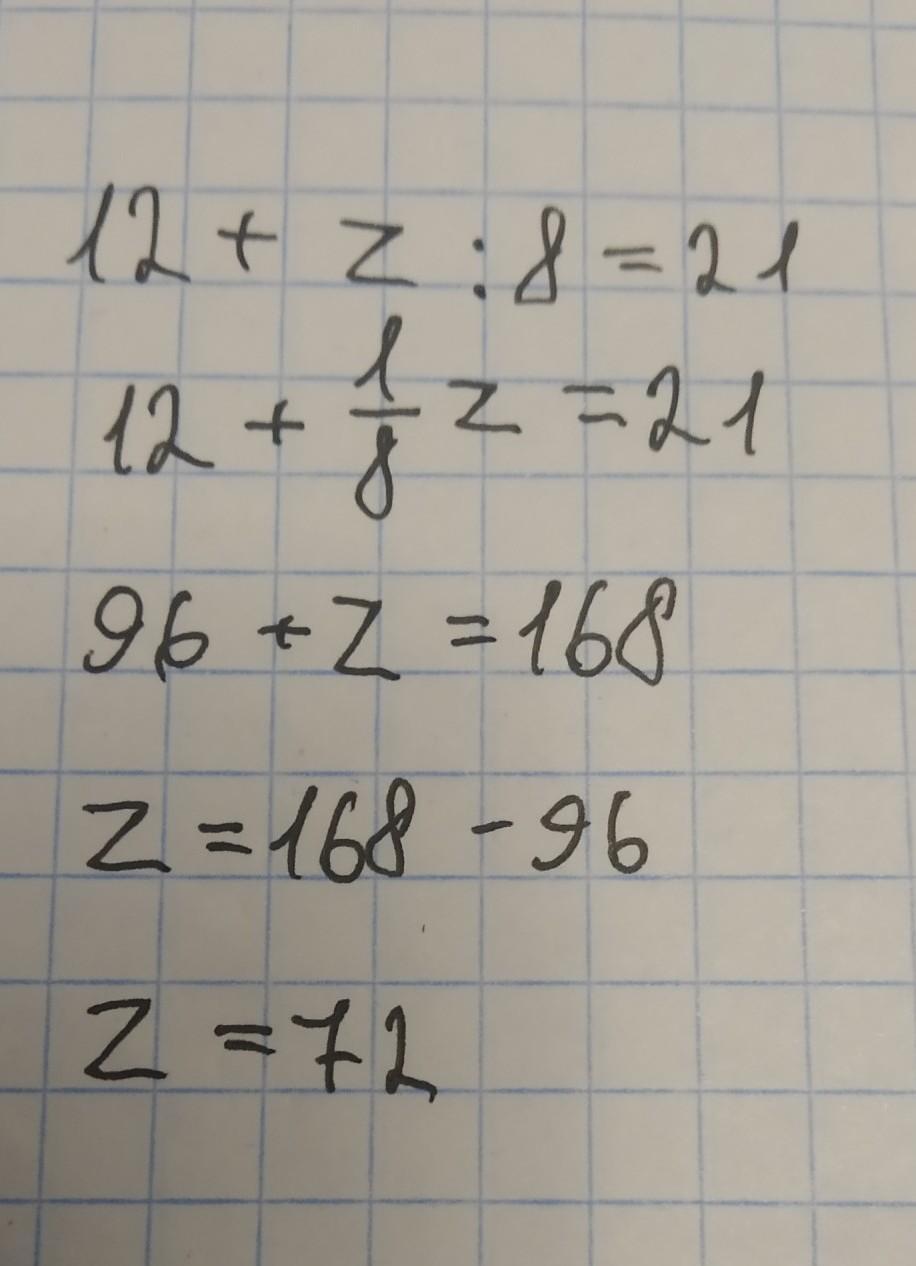 12 + z : 8 = 21
12 + 1/8 z = 21
96 + z = 168
z = 168 - 96
z = 72